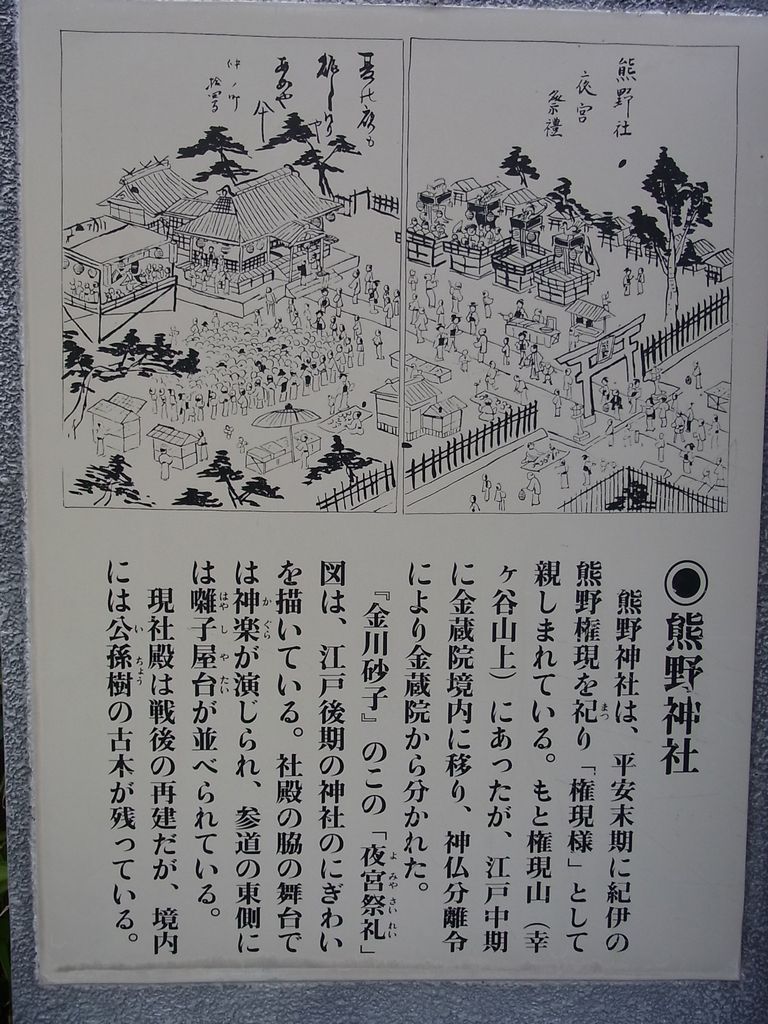 熊野社
夜宮
祭禮
◉熊野神社
熊野神社は、平安末期に紀伊の
熊野権現を祀り「権現様」として
親しまれている。もと権現山（幸
ヶ谷山上）にあったが、江戸中期
に金蔵院境内に移り、神仏分離令
により金蔵院から分かれた。
『金川砂子』のこの「夜宮祭礼」
図は、江戸後期の神社のにぎわい
を描いている。社殿の脇の舞台で
は神楽が演じられ、参道の東側に
は囃子屋台が並べられている。
現社殿は戦後の再建だが、境内
には公孫樹の古木が残っている。